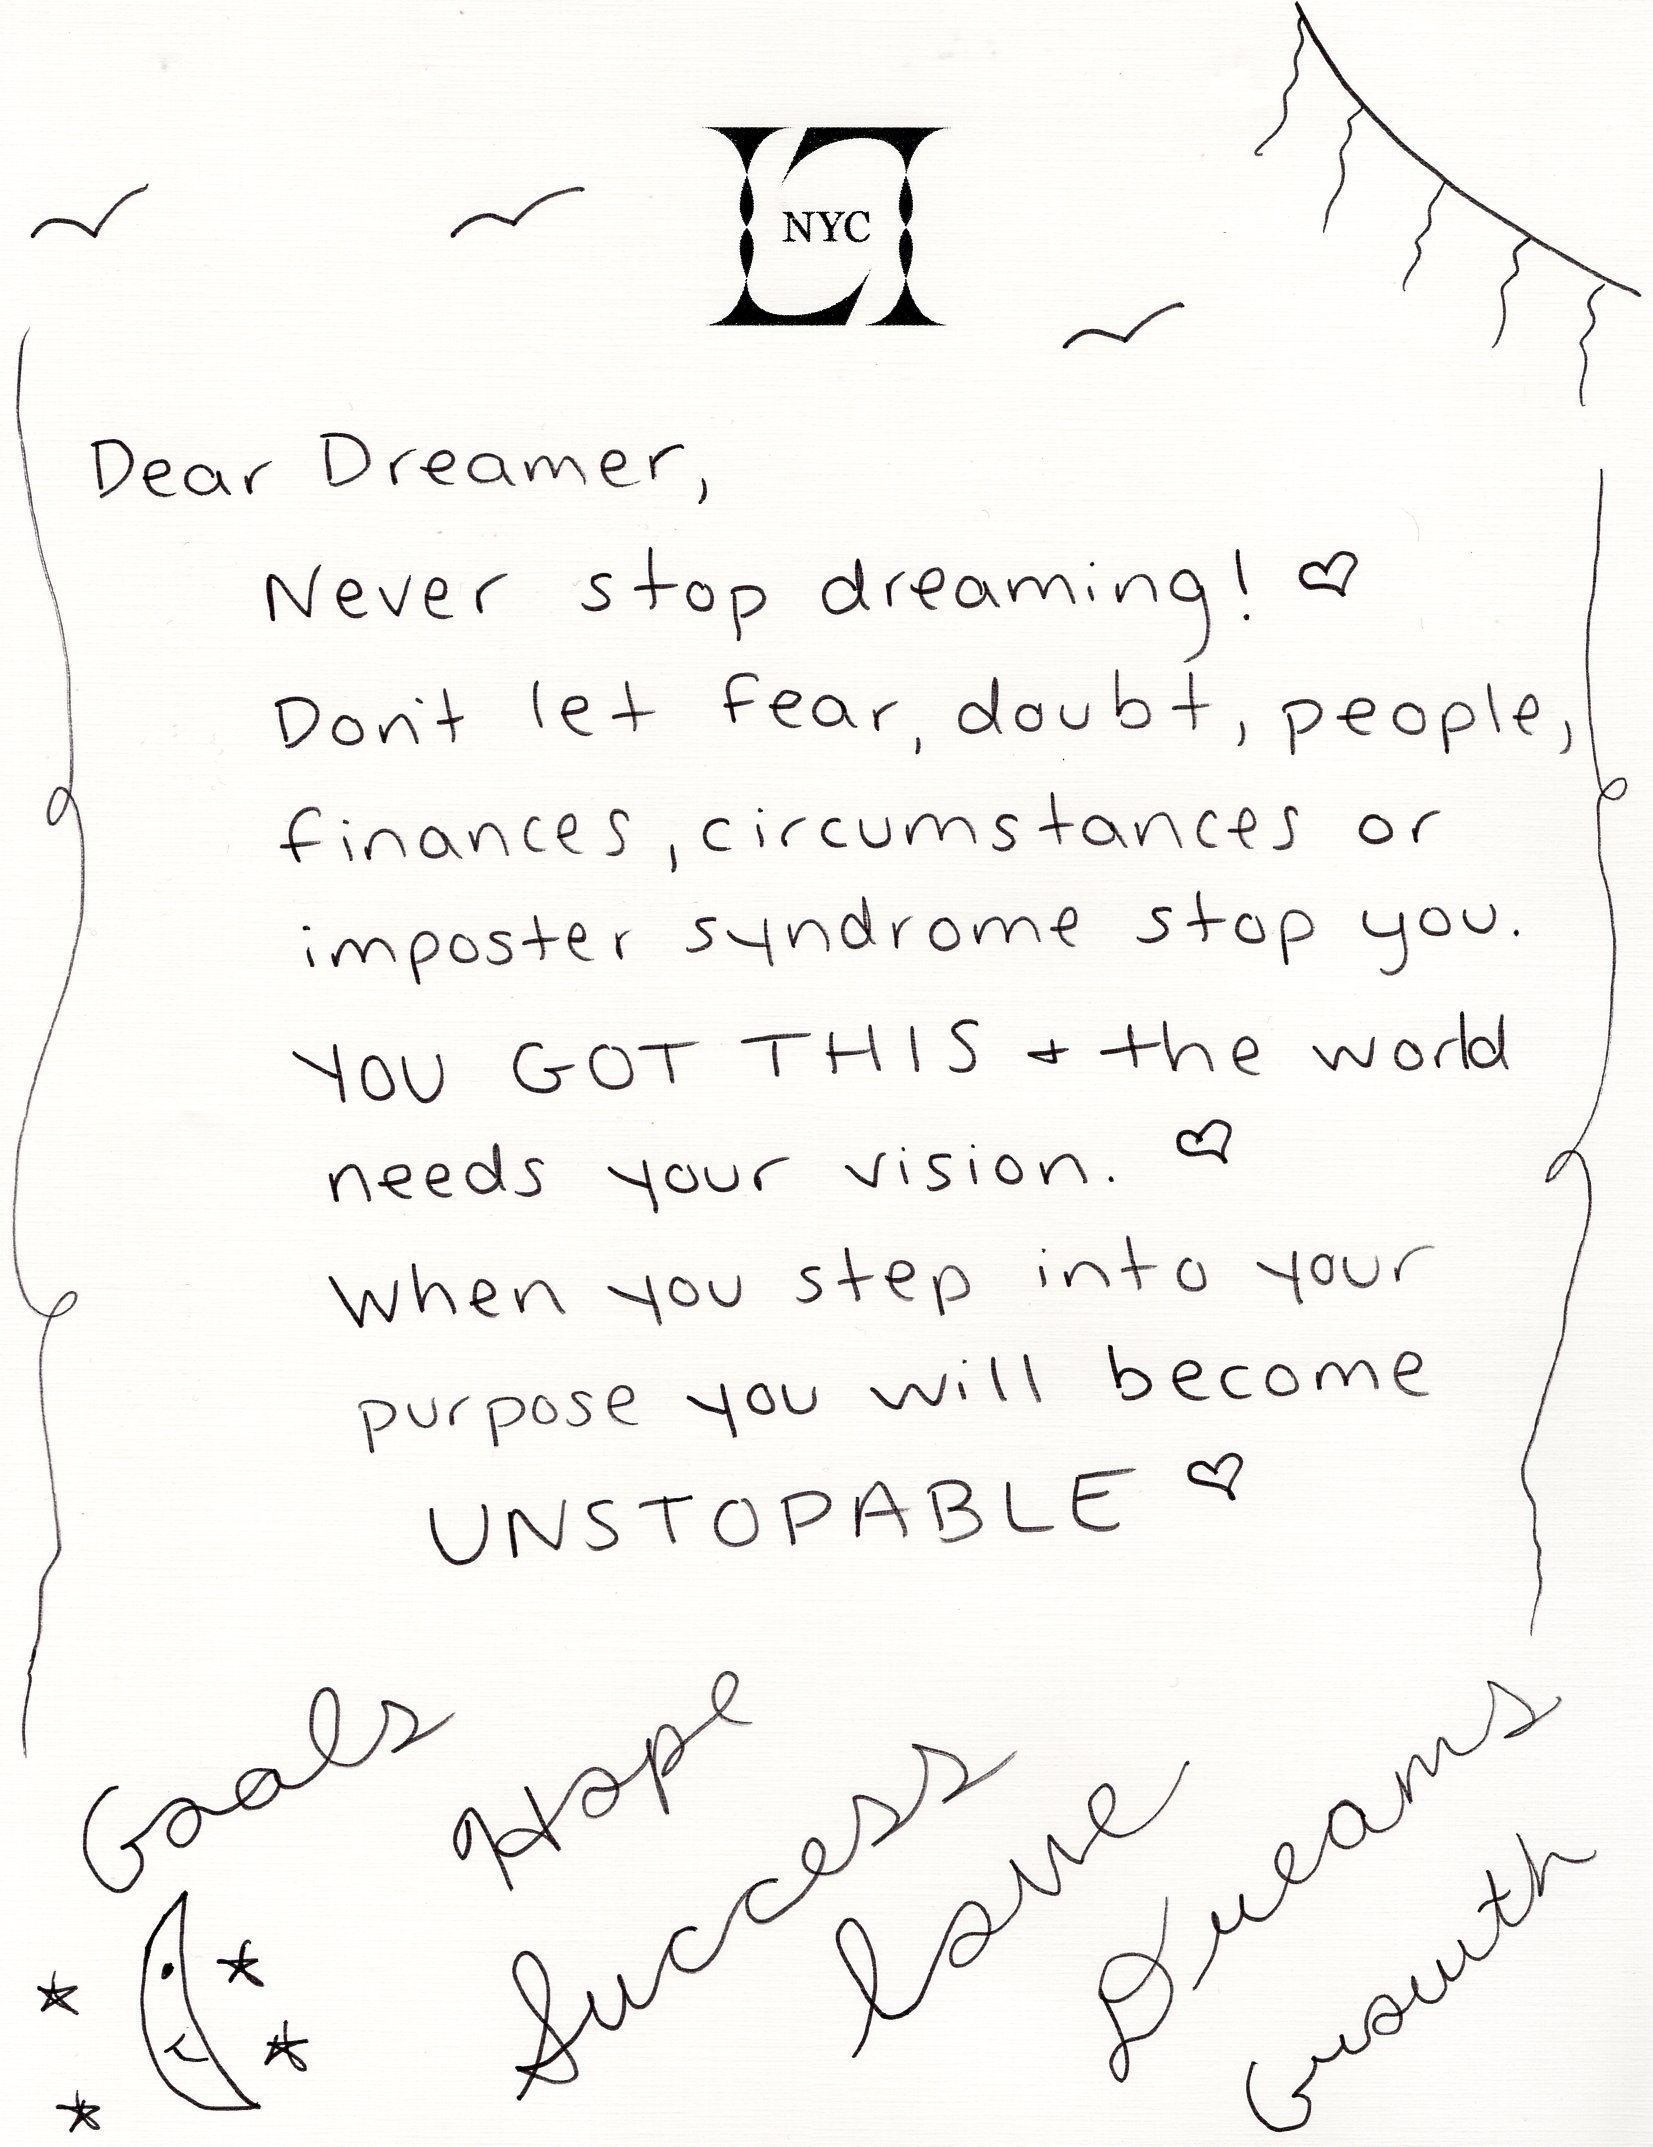 NYC
Dear Dreamer,
Never stop dreaming! ♡
Don't let fear, doubt, people,
finances, circumstances or
imposter syndrome stop you.
YOU GOT THIS + the world
needs your vision. ♡
When you step into your
purpose you will become
UNSTOPABLE ♡
Goals
Hope
Success
Love
Dreams
Growth